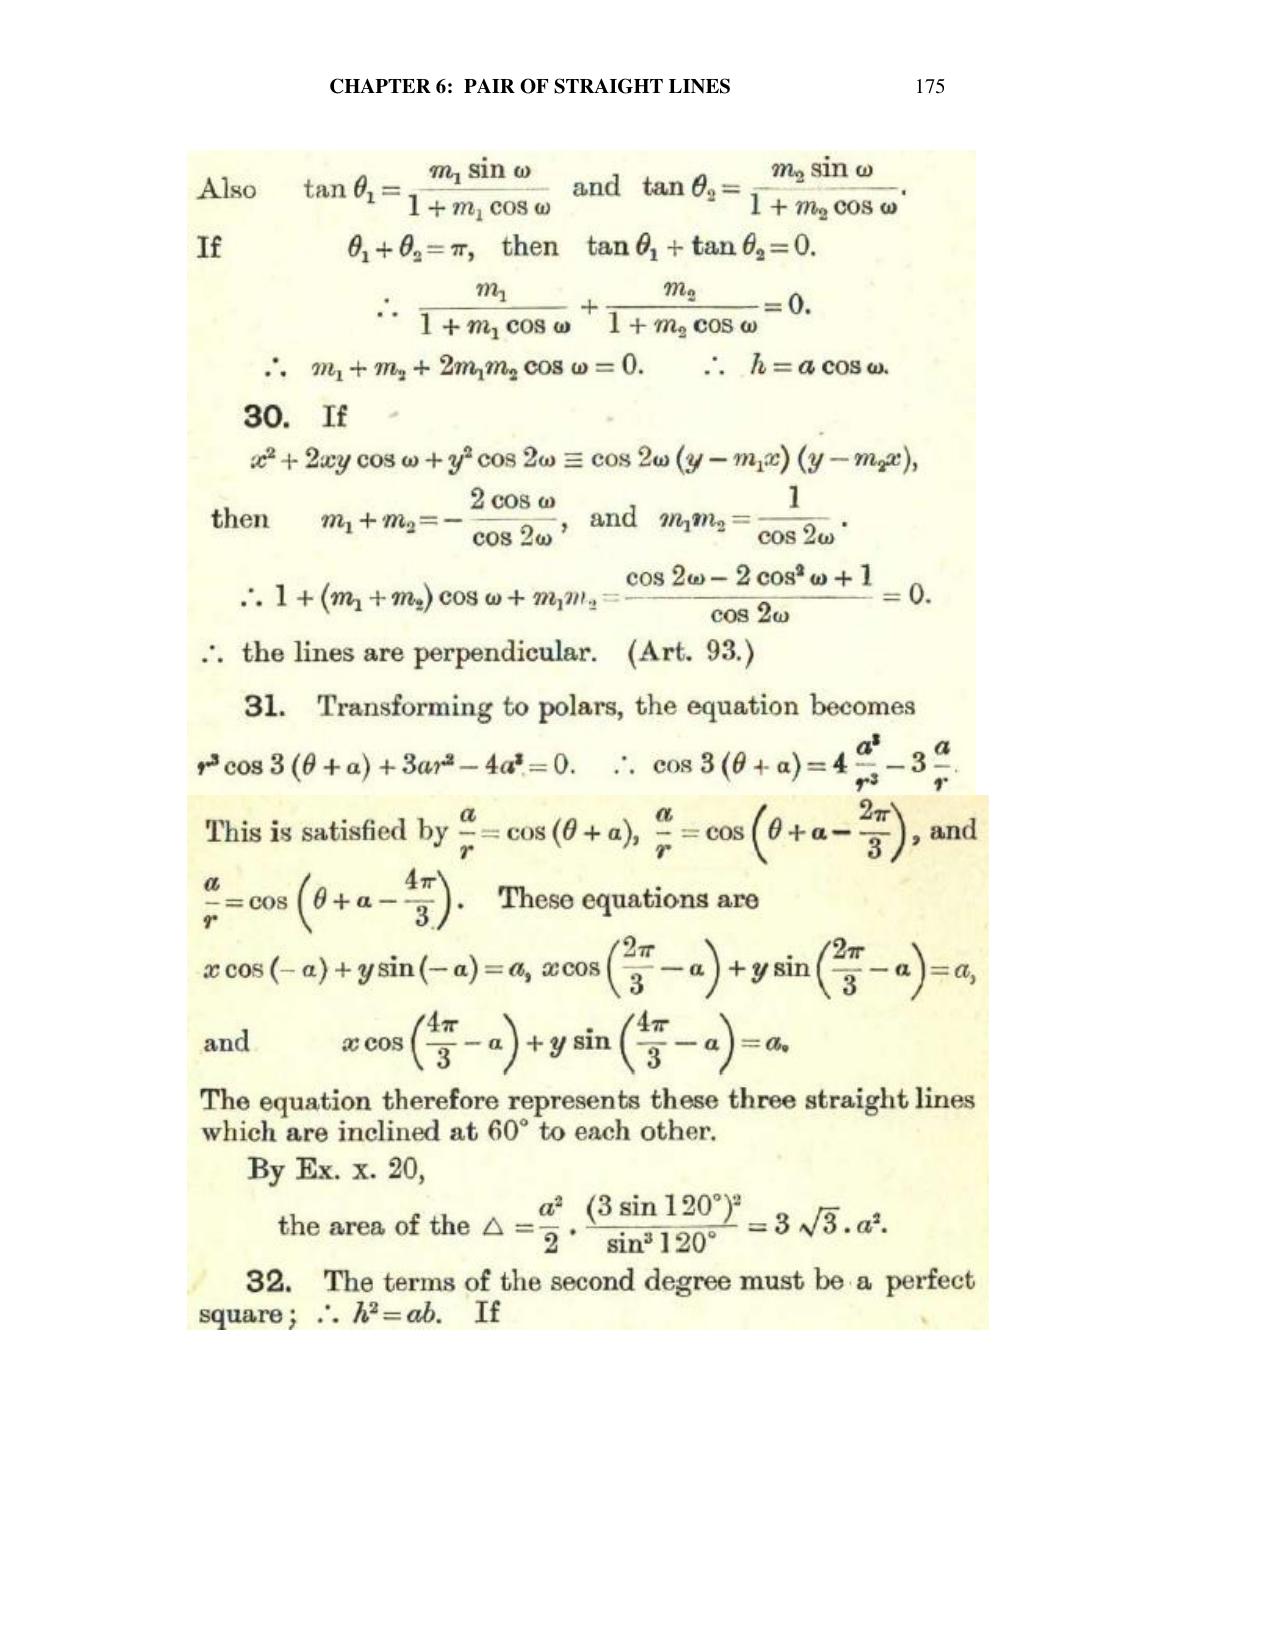 CHAPTER 6: PAIR OF STRAIGHT LINES 175
Also tan θ₁ = m₁ sin ω / (1 + m₁ cos ω) and tan θ₂ = m₂ sin ω / (1 + m₂ cos ω).
If θ₁ + θ₂ = π, then tan θ₁ + tan θ₂ = 0.
∴ m₁ / (1 + m₁ cos ω) + m₂ / (1 + m₂ cos ω) = 0.
∴ m₁ + m₂ + 2m₁m₂ cos ω = 0. ∴ h = a cos ω.
30. If
x² + 2xy cos ω + y² cos 2ω ≡ cos 2ω (y − m₁x) (y − m₂x),
then m₁ + m₂ = − 2 cos ω / cos 2ω, and m₁m₂ = 1 / cos 2ω.
∴ 1 + (m₁ + m₂) cos ω + m₁m₂ = (cos 2ω − 2 cos² ω + 1) / cos 2ω = 0.
∴ the lines are perpendicular. (Art. 93.)
31. Transforming to polars, the equation becomes
r³ cos 3 (θ + α) + 3ar² − 4a³ = 0. ∴ cos 3 (θ + α) = 4 a³/r³ − 3 a/r.
This is satisfied by a/r = cos (θ + α), a/r = cos (θ + α − 2π/3), and
a/r = cos (θ + α − 4π/3). These equations are
x cos (− α) + y sin (− α) = a, x cos (2π/3 − α) + y sin (2π/3 − α) = a,
and x cos (4π/3 − α) + y sin (4π/3 − α) = a.
The equation therefore represents these three straight lines
which are inclined at 60° to each other.
By Ex. x. 20,
the area of the △ = a²/2 . (3 sin 120°)² / sin³ 120° = 3 √3 . a².
32. The terms of the second degree must be a perfect
square; ∴ h² = ab. If